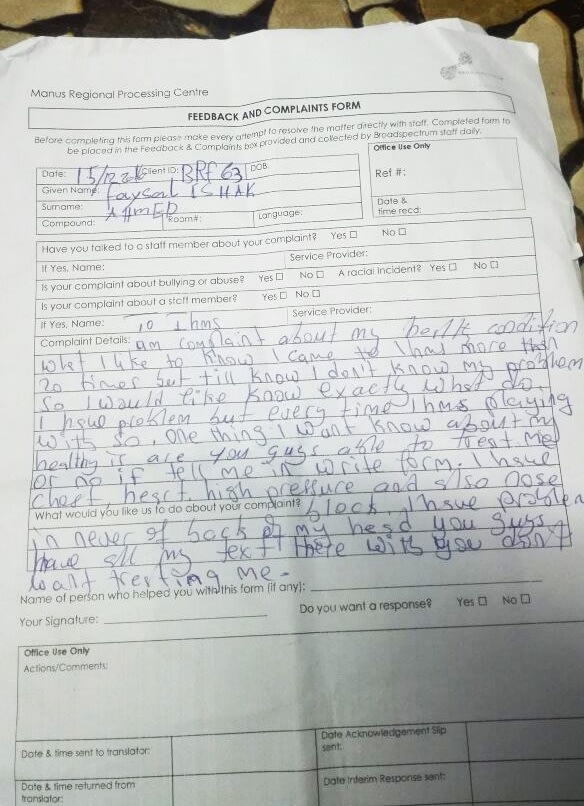 Manus Regional Processing Centre
FEEDBACK AND COMPLAINTS FORM
Before completing this form please make every attempt to resolve the matter directly with staff. Completed form to
be placed in the Feedback & Complaints box provided and collected by Broadspectrum staff daily.
Date: 15/12 Client ID: BRF 63 DOB:
Given Name: Faysal ISHAK
Surname: AHMED
Compound: Room#: Language:
Office Use Only
Ref #:
Date &
time recd:
Have you talked to a staff member about your complaint? Yes No
If Yes, Name: Service Provider:
Is your complaint about bullying or abuse? Yes No A racial incident? Yes No
Is your complaint about a staff member? Yes No
If Yes, Name: To Ihms Service Provider:
Complaint Details: am complaint about my health condition
what I like to know I came to Ihms more than
20 times but till know I don't know my problem
so I would like know exactly what do.
I have problem but every time Ihms playing
with so, one thing I want know about my
healthy is are you guys able to treat me
or no if tell me in write form. I have
chest, heart, high pressure and also nose
What would you like us to do about your complaint? block, I have problem
in never of back of my head you guys
have all my text there with you don't
want treating me.
Name of person who helped you with this form (if any):
Your Signature: Do you want a response? Yes No
Office Use Only
Actions/Comments:
Date & time sent to translator:
Date Acknowledgement Slip
sent:
Date & time returned from
translator:
Date Interim Response sent: